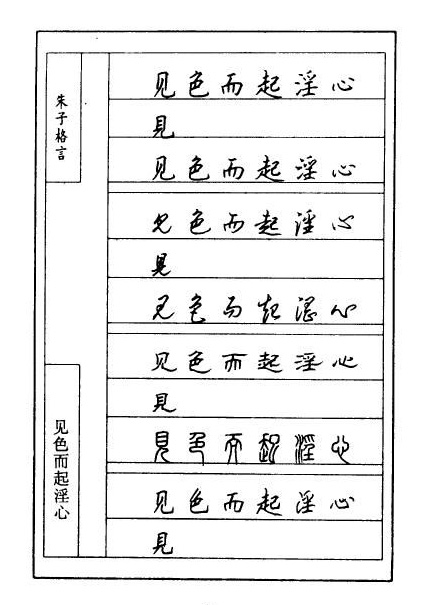 朱子格言
见色而起淫心
见色而起淫心
見
见色而起淫心
见色而起淫心
見
见色而起淫心
见色而起淫心
見
見色而起淫心
见色而起淫心
見